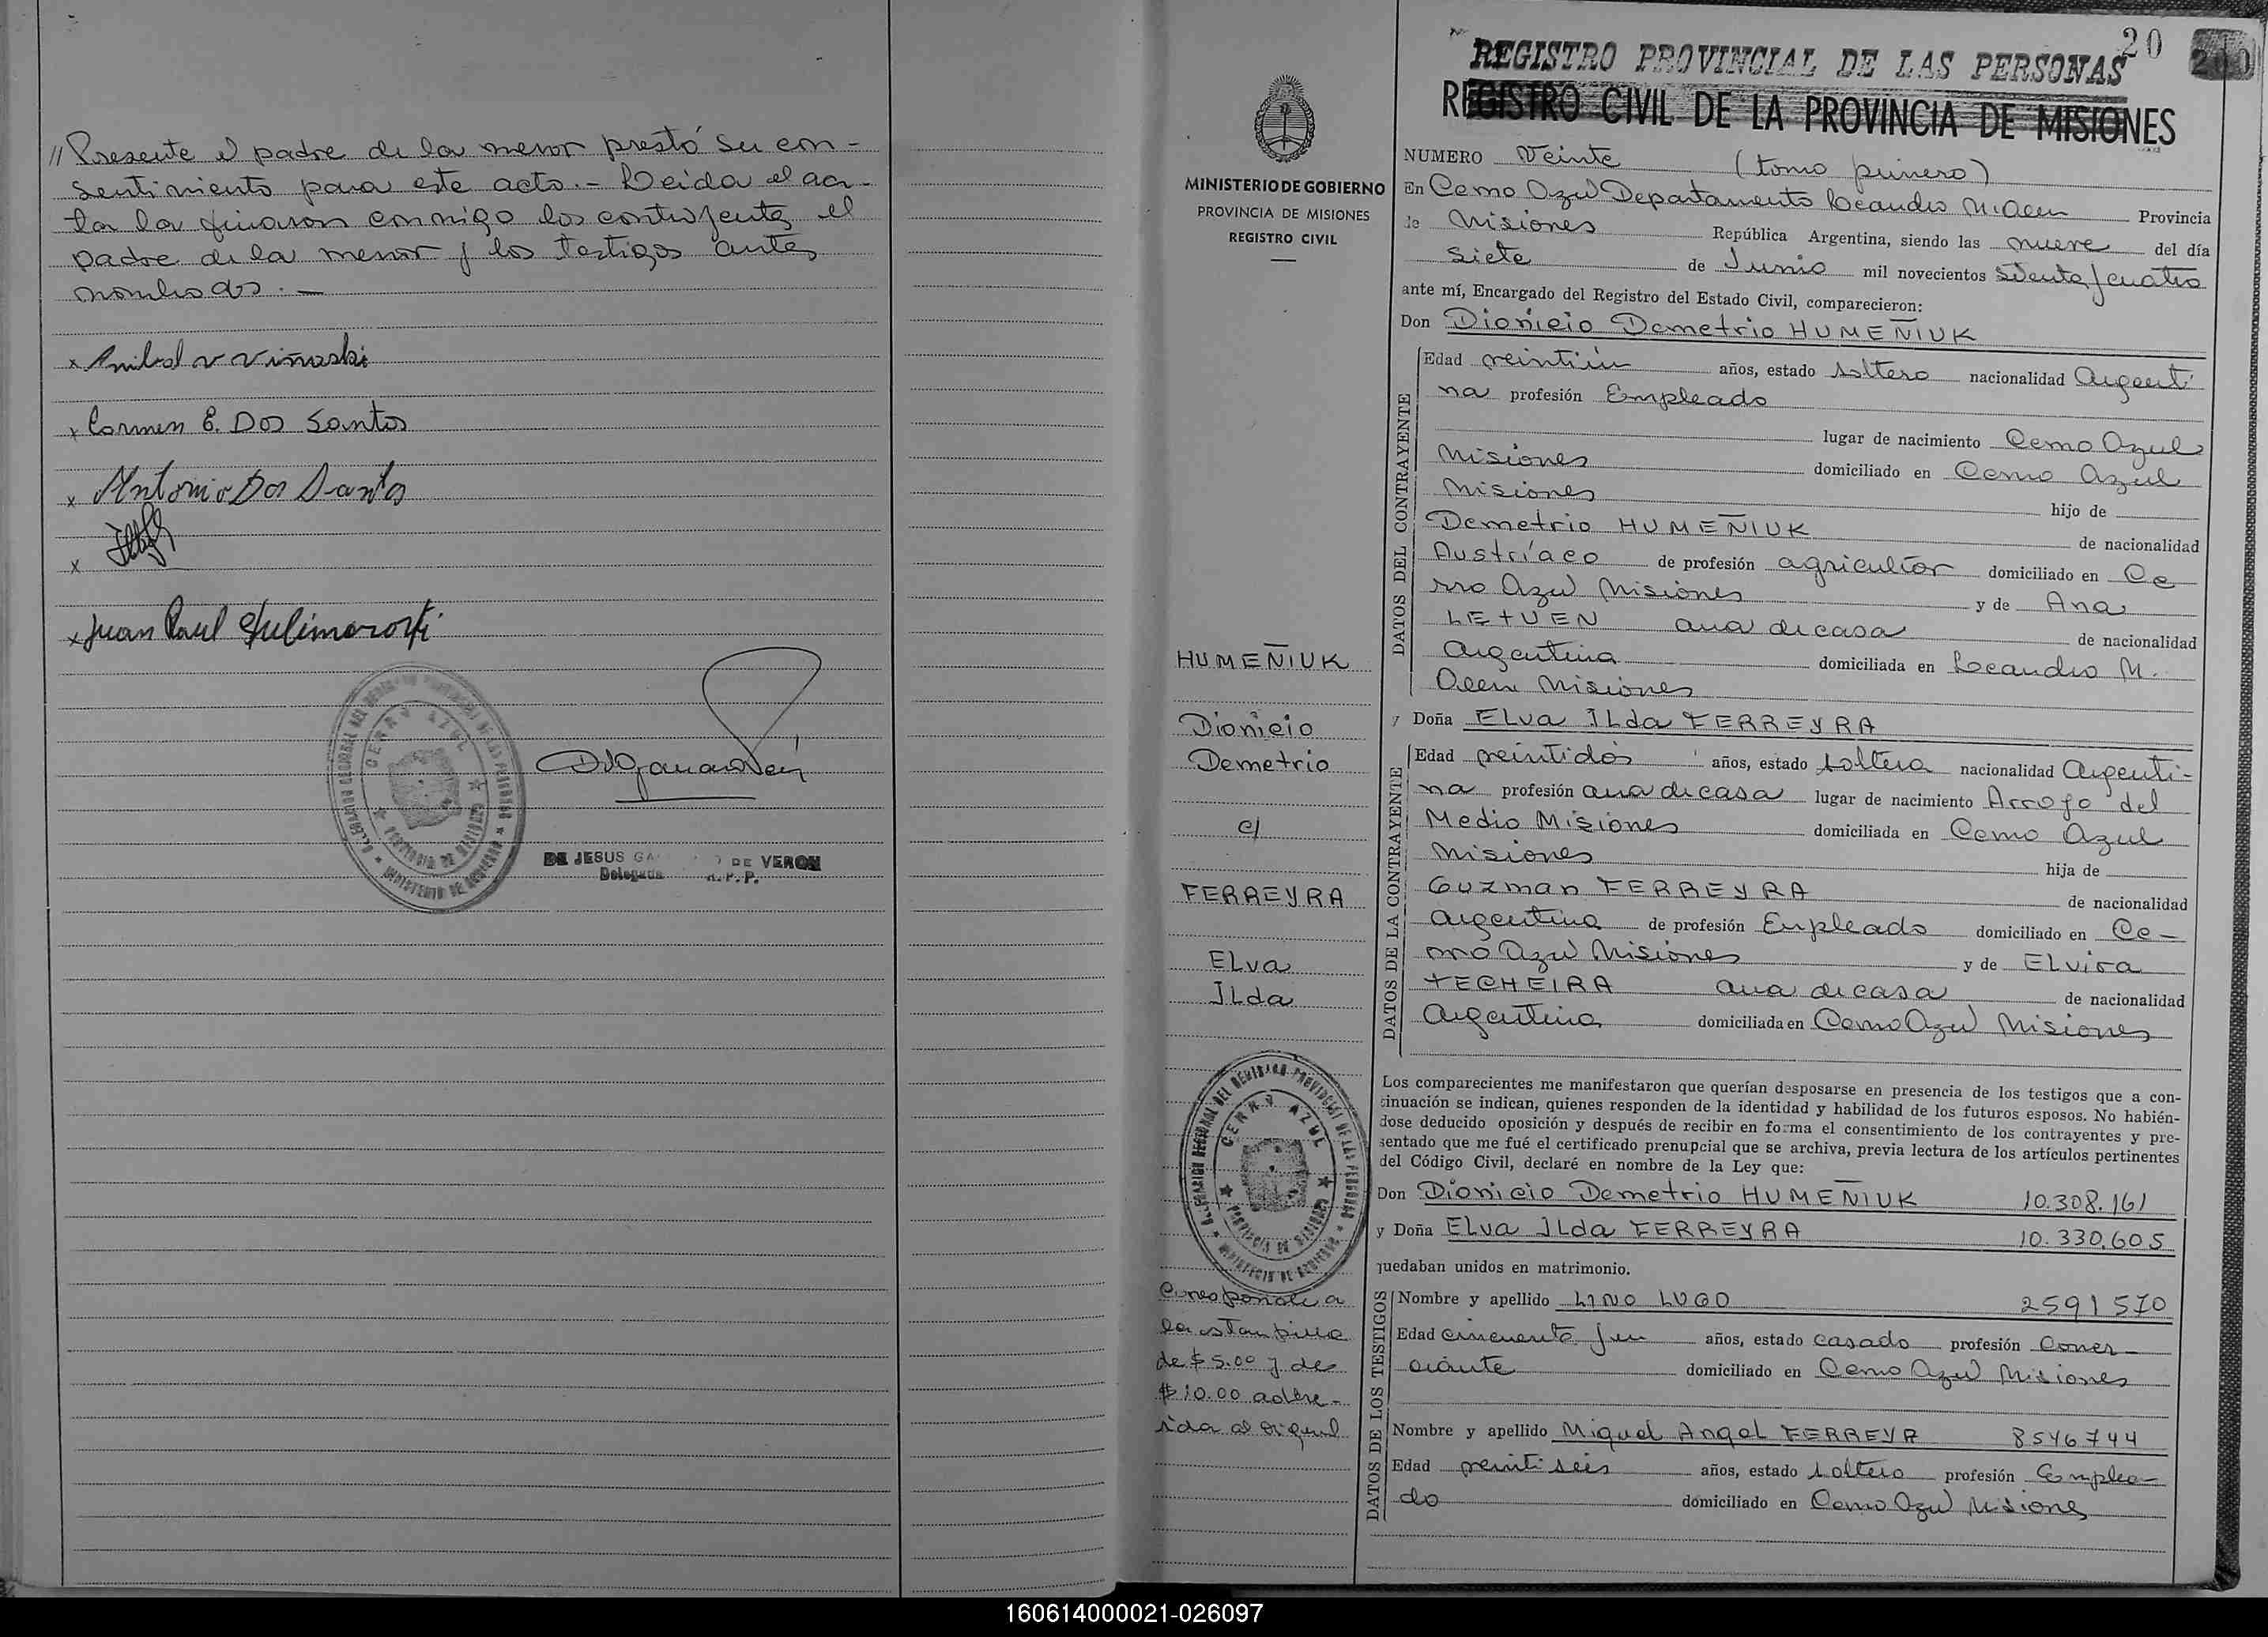 // Presente el padre de la menor prestó su con-
sentimiento para este acto.- Leida el ac-
ta la firaron conmigo los contrajentes el
padre de la menor y los testigos antes
nombrados.-
x Anibal V Vinuski
x Carmen E. Dos Santos
x Antonio Dos Santos
x
x Juan Raul
CERRO AZUL
PROVINCIA DE MISIONES
MINISTERIO DE GOBIERNO
DE JESUS GA DE VERON
Delegada R.P.P.
20
REGISTRO PROVINCIAL DE LAS PERSONAS
REGISTRO CIVIL DE LA PROVINCIA DE MISIONES
MINISTERIO DE GOBIERNO
PROVINCIA DE MISIONES
REGISTRO CIVIL
HUMEÑIUK
Dionicio
Demetrio
c/
FERREYRA
Elva
Ilda
CERRO AZUL
PROVINCIA DE MISIONES
MINISTERIO DE GOBIERNO
Corresponde a
la estampilla
de $ 5.00 y de
$ 10.00 adhe-
rida al original
NUMERO Veinte (tomo primero)
En Cerro Azul Departamento Leandro N. Alem Provincia
de Misiones República Argentina, siendo las nueve del día
siete de Junio mil novecientos setenta y cuatro
ante mí, Encargado del Registro del Estado Civil, comparecieron:
Don Dionicio Demetrio HUMEÑIUK
DATOS DEL CONTRAYENTE
Edad veintiún años, estado soltero nacionalidad Argenti
na profesión Empleado
lugar de nacimiento Cerro Azul
Misiones domiciliado en Cerro Azul
Misiones hijo de
Demetrio HUMEÑIUK de nacionalidad
Austríaco de profesión agricultor domiciliado en Ce
rro Azul Misiones y de Ana
LETUEN ama de casa de nacionalidad
Argentina domiciliada en Leandro N.
Alem Misiones
y Doña Elva Ilda FERREYRA
DATOS DE LA CONTRAYENTE
Edad veintidós años, estado soltera nacionalidad Argenti-
na profesión ama de casa lugar de nacimiento Arroyo del
Medio Misiones domiciliada en Cerro Azul
Misiones hija de
Guzman FERREYRA de nacionalidad
Argentina de profesión Empleado domiciliado en Ce-
rro Azul Misiones y de Elvira
TECHEIRA ama de casa de nacionalidad
Argentina domiciliada en Cerro Azul Misiones
Los comparecientes me manifestaron que querían desposarse en presencia de los testigos que a con-
tinuación se indican, quienes responden de la identidad y habilidad de los futuros esposos. No habién-
dose deducido oposición y después de recibir en forma el consentimiento de los contrayentes y pre-
sentado que me fué el certificado prenupcial que se archiva, previa lectura de los artículos pertinentes
del Código Civil, declaré en nombre de la Ley que:
Don Dionicio Demetrio HUMEÑIUK 10.308.161
y Doña Elva Ilda FERREYRA 10.330.605
quedaban unidos en matrimonio.
DATOS DE LOS TESTIGOS
Nombre y apellido LINO LUGO 2591570
Edad cincuenta y un años, estado casado profesión Comer-
ciante domiciliado en Cerro Azul Misiones
Nombre y apellido Miguel Angel FERREYR 8546744
Edad veintiseis años, estado soltero profesión Emplea-
do domiciliado en Cerro Azul Misiones
160614000021-026097